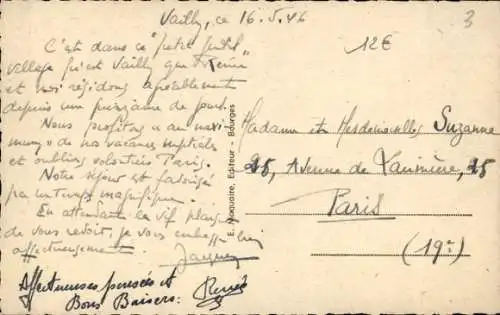 Vailly, ce 16.5.46
3
12€
C'est dans ce "petit
village qu'est Vailly, que Renée
et moi résidons agréablement
depuis une quinzaine de jours.
Nous profitons "au maxi-
mum" de nos vacances
et oublions volontiers Paris.
Notre séjour est favorisé
par un temps magnifique.
En attendant le vif plaisir
de vous revoir, je vous embrasse bien
affectueusement.
Jacques
Affectueuses pensées et
Bons Baisers. Renée
E. Maquaire, Editeur - Bourges
Madame et Mesdemoiselles Suzanne
25, Avenue de 25
Paris
(19e)